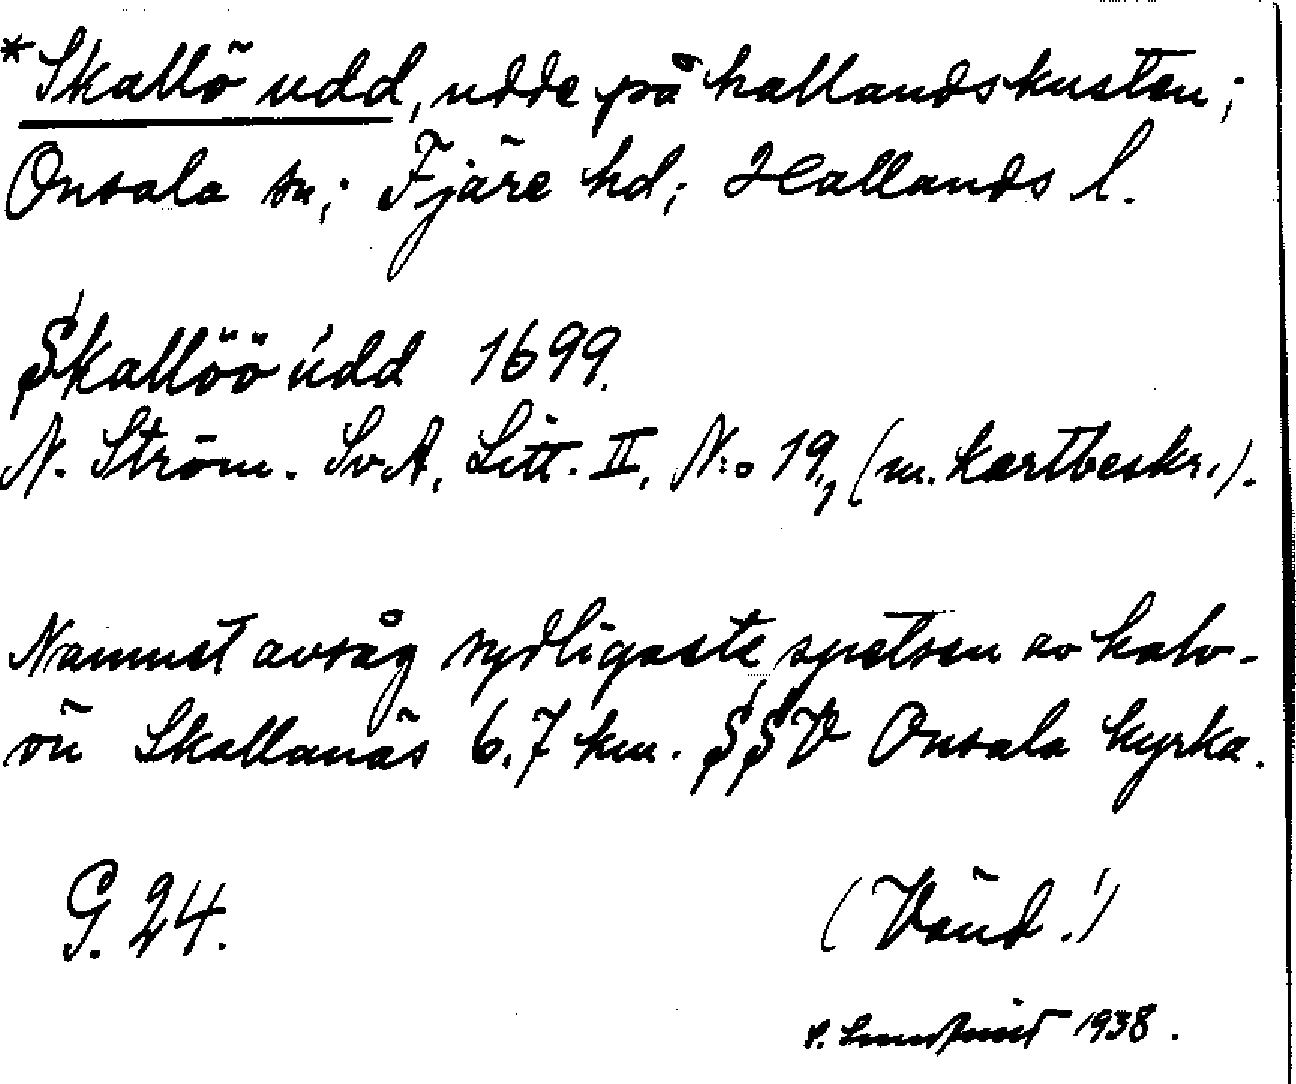 *Skallö udd, udde på hallandskusten;
Onsala sn; Fjäre hd; Hallands l.
Skallöö udd 1699.
N. Ström. SvA, Litt. II, N:o 19, (m. kartbeskr.).
Namnet avsåg sydligaste spetsen av halv-
ön Skallanäs 6,7 km. SSV Onsala kyrka.
G. 24.
(Vänd!)
1938.